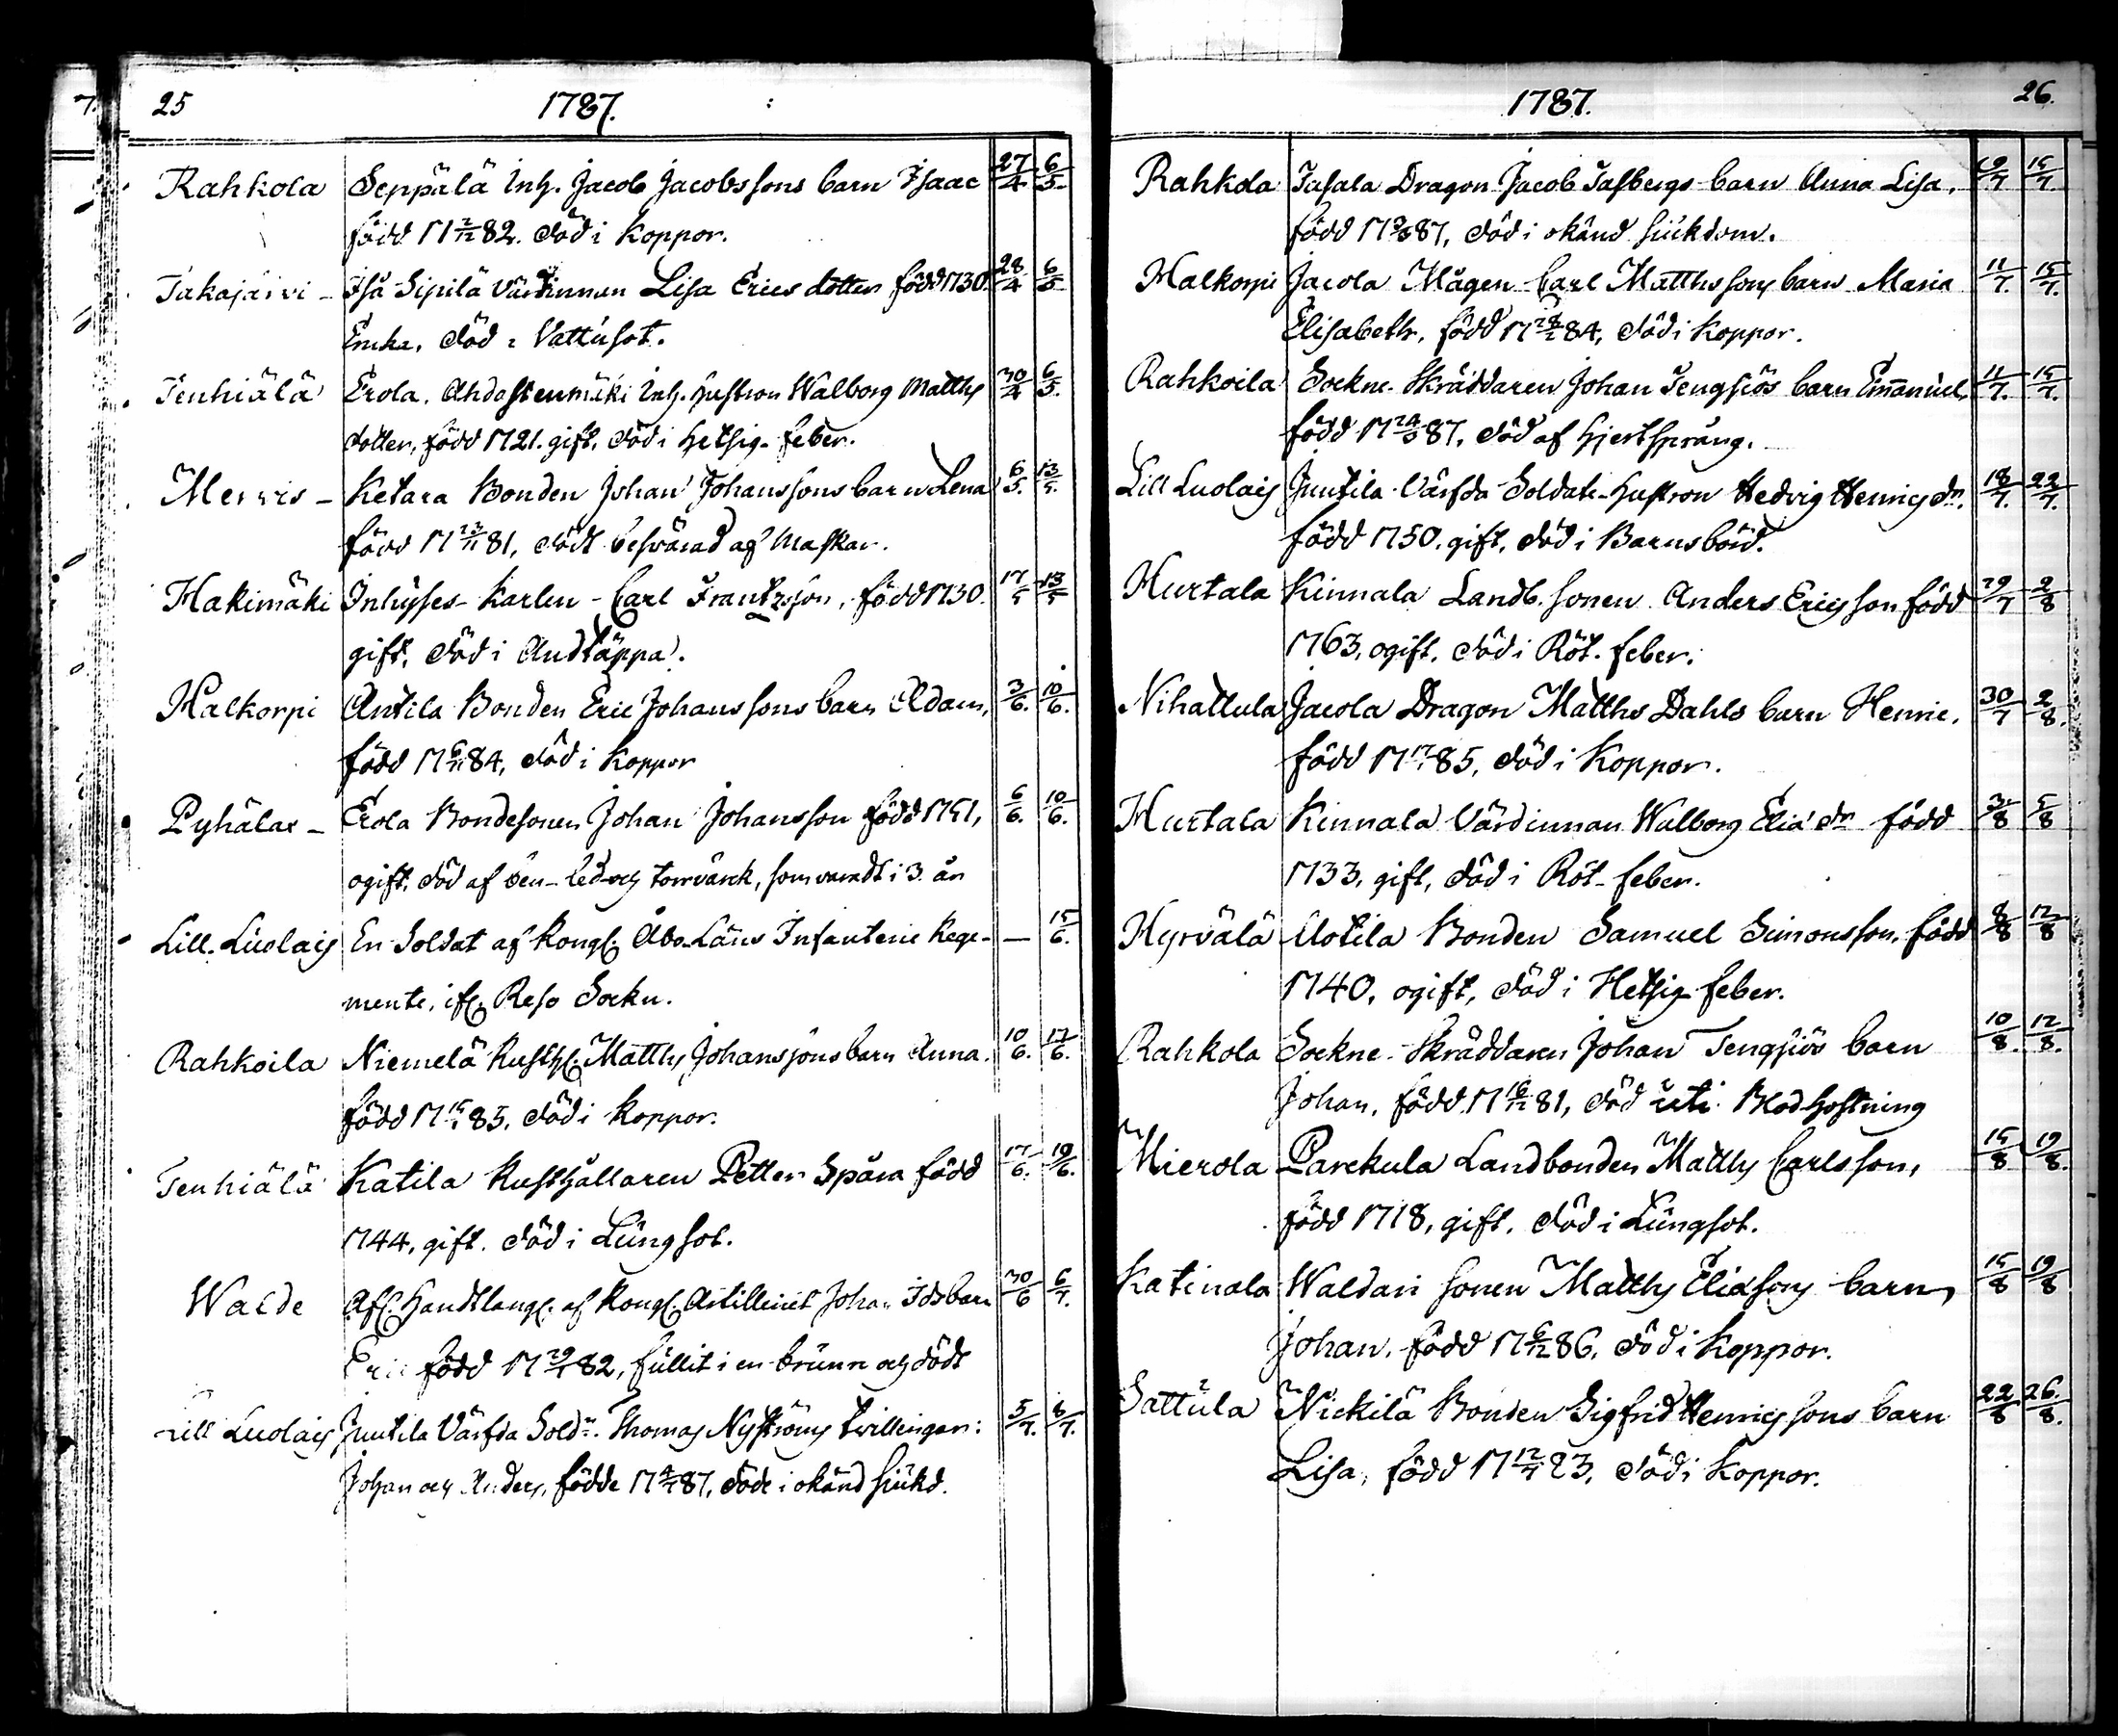 25 1787.
Rahkola Seppälä Inh. Jacob Jacobssons barn Isaac 27/4 6/5.
född 17 2/12 82. död i Koppor.
Takajärvi - Isä Sipilä Värdinnan Lisa Erics dotter född 1730. 28/4 6/5
Enka, död i Vattusot.
Tenhiälä Erola, Ahdastenmäki Inh. hustron Walborg Matths 30/4 6/5.
dotter, född 1721. gift, död i Hetsig-feber.
Mervis - Ketara Bonden Johan Johanssons barn Lena 6/5. 13/5.
född 17 23/11 81, dödt besvärad af Maskar.
Hakimäki Inhyses-Karlen - Carl Frantzsson, född 1730. 17/5 13/5
gift, död i Andtäppa.
Halkorpi Antila Bonden Eric Johanssons barn Adam, 3/6. 10/6.
född 17 6/11 84, död i Koppor
Pyhälax - Erola Bondesonen Johan Johansson född 1751, 6/6. 10/6.
ogift, död af Ben-Led-och torrvärck, som varadt i 3 år
Lill. Luolais En Soldat af Kongl. Åbo Läns Infanterie Rege- — 15/6.
mente, ifr. Reso Sockn.
Rahkoila Niemelä Rusth. Matths Johanssons barn Anna. 10/6. 17/6.
född 17 85, död i Koppor.
Tenhiälä Katila Rusthållaren Petter Spåra född 17/6. 19/6.
1744, gift. död i Lungsot.
Walde Afl. Handtlang. af Kongl. Artilleriet Johan Ids barn 30/6 6/7.
Eric född 17 29/4 82, fullit i en brunn och dödt
Lill Luolais Juutila Värfda Sold:n Thomas Nyströms tvillingar: 5/7. 6/7.
Johan och Anders, födde 17 4/7 87, döde i okänd siukd.
1787. 26.
Rahkola Jasala Dragon Jacob Jasbergs barn Anna Lisa, 10/7 15/7
född 17 3/8 87, död i okänd siukdom.
Halkorpi Jacola Mågen Carl Matthssons barn Maria 11/7. 15/7.
Elisabeth, född 17 84, död i Koppor.
Rahkoila Sockne-Skräddaren Johan Tengsiös barn Emanuel, 11/7. 15/7.
född 17 87, död af hjertsprång.
Lill Luolais Juutila Värfda Soldats-Hustron Hedvig Henrics dr. 18/7. 22/7.
född 1750. gift, död i Barnsbörd.
Hurtala Kinnala Landb. sonen Anders Ericsson född 29/7 2/8
1763, ogift, död i Röt-feber.
Nihattula Jacola Dragon Matths Dahls barn Henric. 30/7 2/8.
född 17 85, död i Koppor.
Hurtala Kinnala Värdinnan Walborg Eliæ dr född 3/8 5/8
1733, gift, död i Röt-feber.
Hyrvälä Uotila Bonden Samuel Simonsson, född 8/8 12/8
1740, ogift, död i Hetsig feber.
Rahkola Sockne-Skräddaren Johan Tengsiös barn 10/8. 12/8.
Johan, född 17 16/12 81, död uti Blodhostning
Mierola Parckula Landbonden Matths Carlsson, 15/8 19/8.
född 1718, gift, död i Lungsot.
Katinala Waldari sonen Matths Eliæsons barn 15/8 19/8
Johan, född 17 6/12 86, död i Koppor.
Sattula Nickilä Bonden Sigfrid Henricssons barn 22/8 26/8.
Lisa, född 17 12/7 83, död i Koppor.